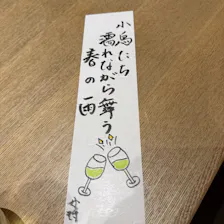 小鳥たち
濡れながら舞う
春の雨